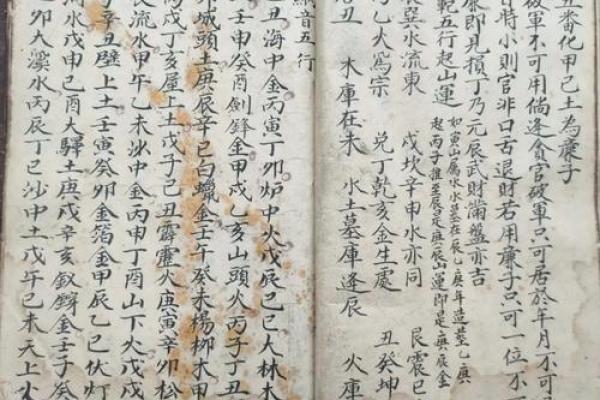 五番化甲己土為廉子
破軍不可用倘逢貪官破軍只可居於年月不可
時小則官非口舌退財若用廉子只可一位不
泰即見損丁乃元辰武財滿盤亦吉
範五行起山運
如寅山屬水水墓在辰乙庚年造葬乙庚
起丙子推至辰是庚辰山運即是庚辰金
巽水流東 戌坎辛申水亦同 艮震巳
乙火爲宗 兌丁乾亥金生處 丑癸坤
丑 木庫在未 水土墓庫逢辰 火庫
音五行
丑海中金丙寅丁卯炉中火戊辰己巳大林木
壬申癸酉劍鋒金甲戌乙亥山頭火丙子丁丑
卯城頭土庚辰辛巳白蠟金壬午癸未楊柳木甲
戌丁亥屋上土戊子己丑霹靂火庚寅辛卯松
長流水甲午乙未沙中金丙申丁酉山下火戊戌
辛丑壁上土壬寅癸卯金箔金甲辰乙巳伏灯
水戊申己酉大驛土庚戌辛亥釵釧金壬子癸
卯大溪水丙辰丁巳沙中土戊午己未天上火